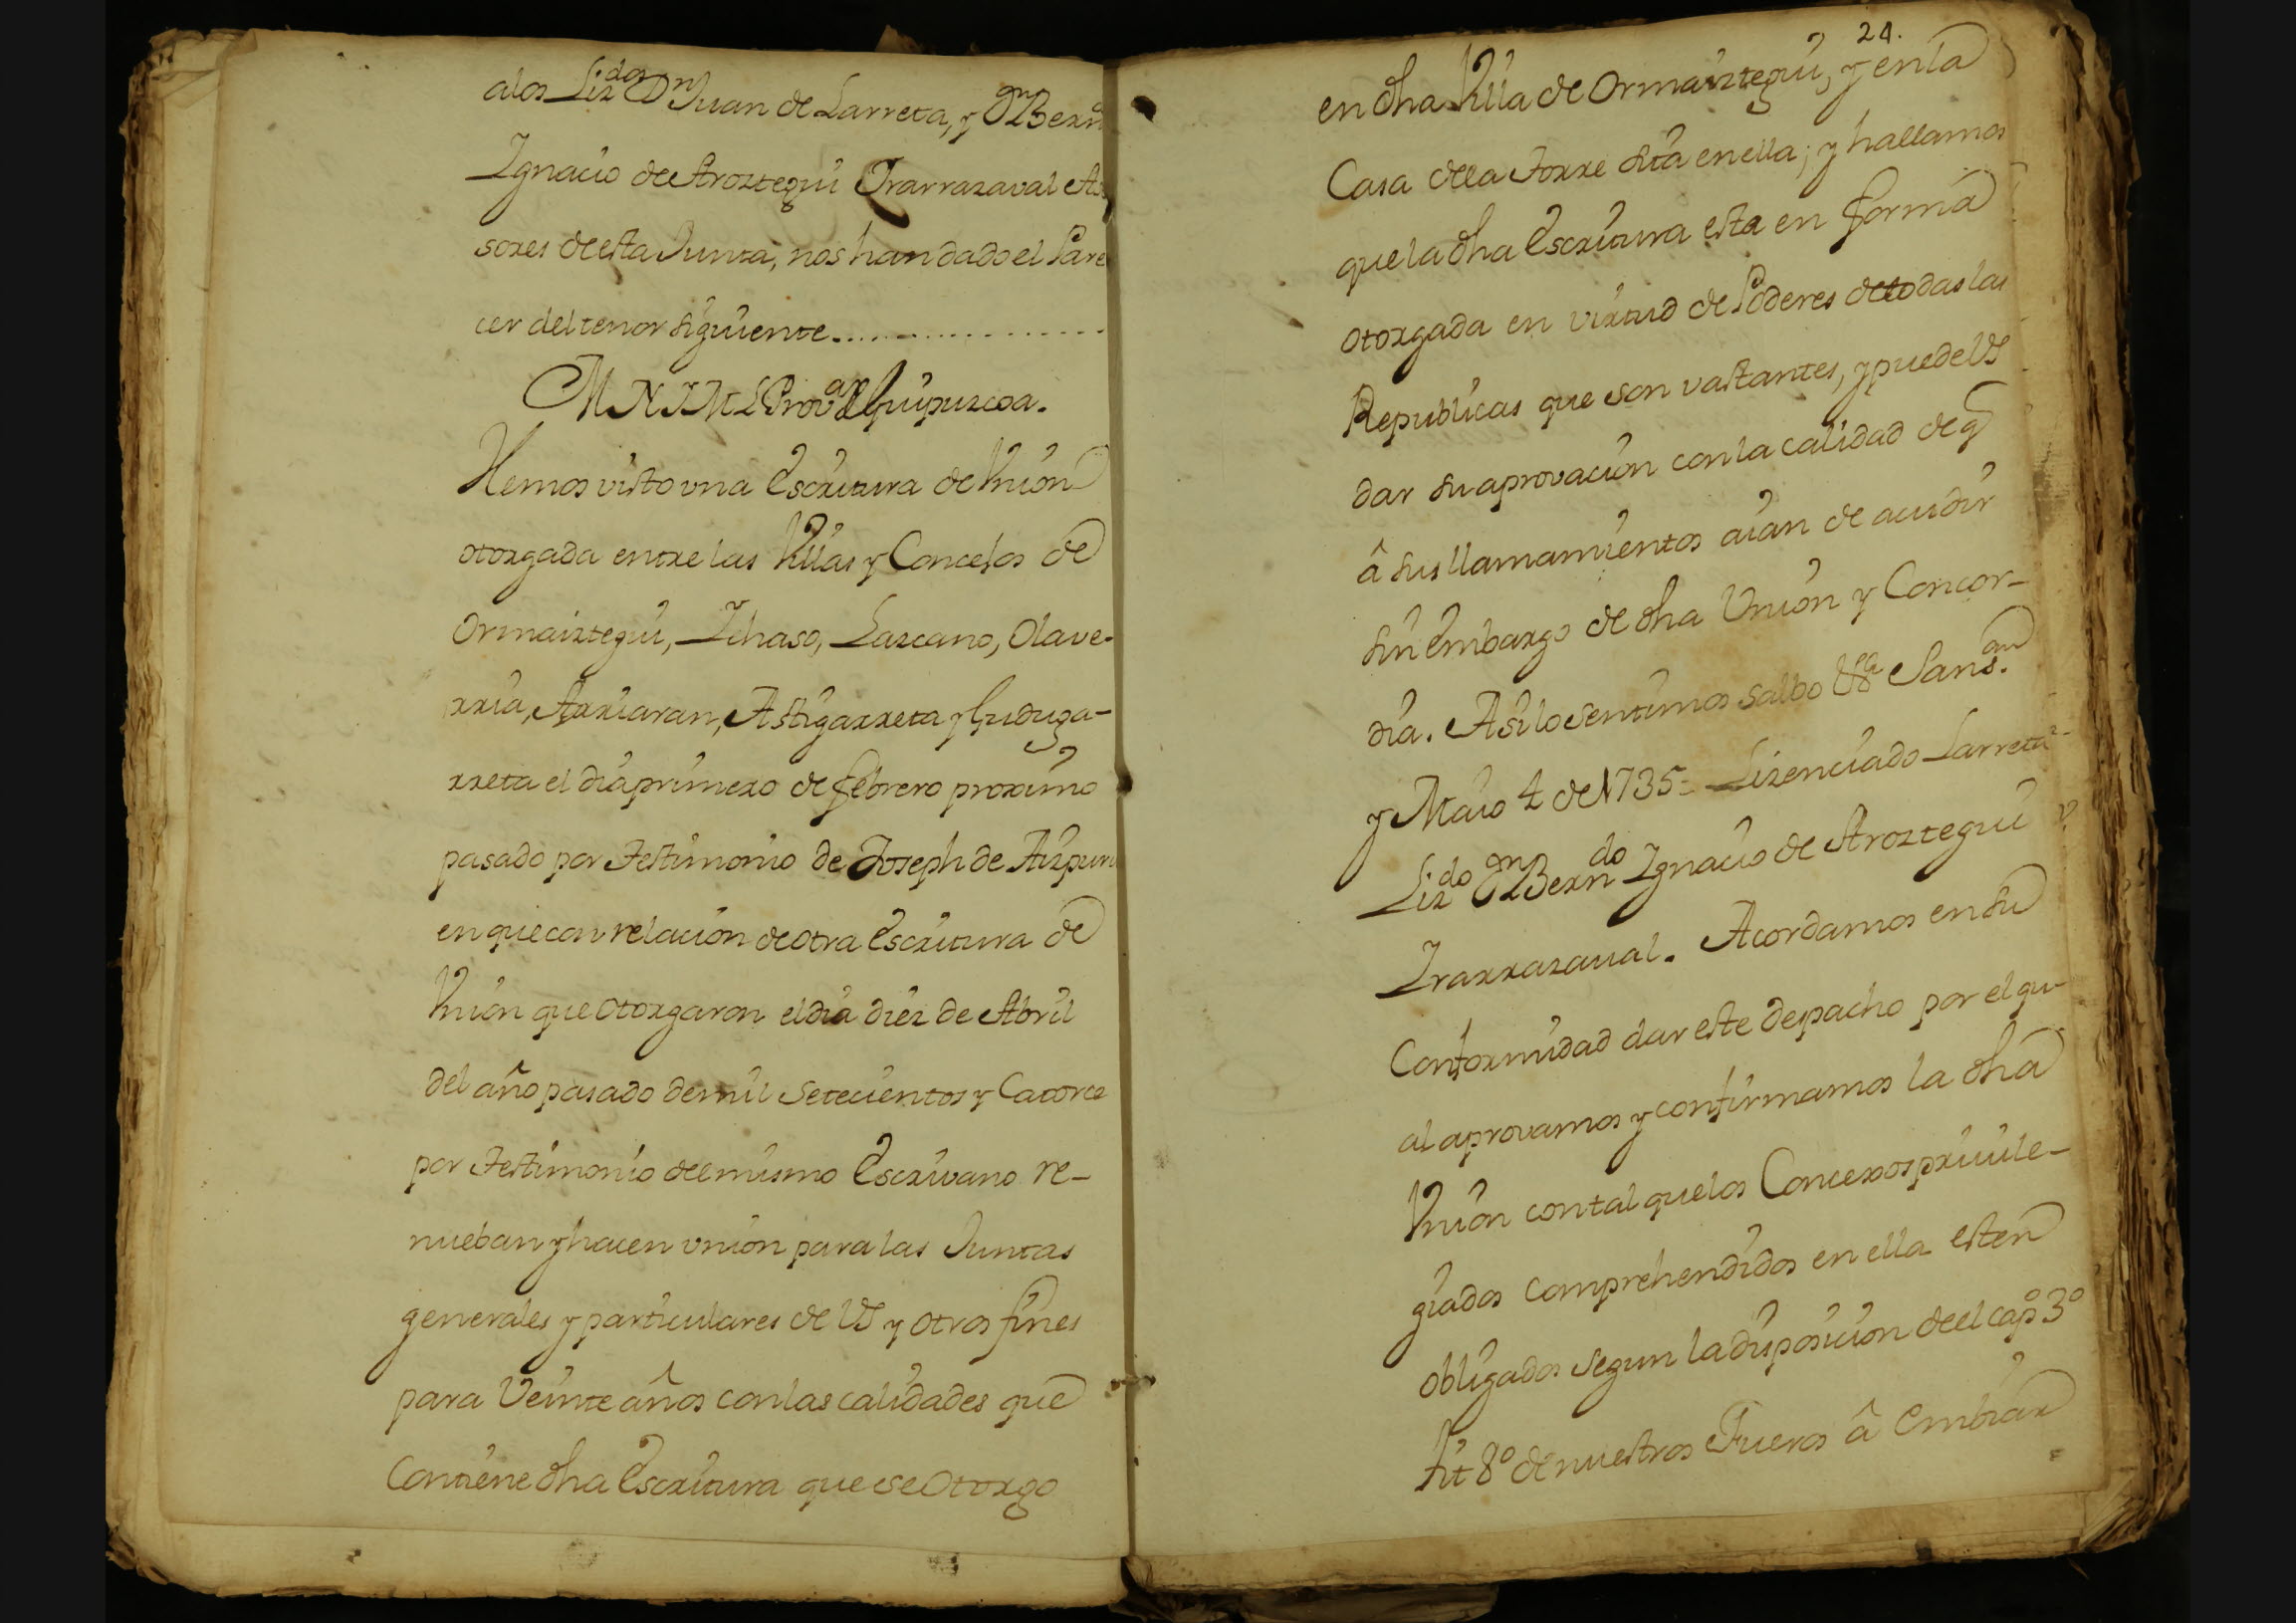 alos Liz.dos Dn Juan de Larreta, y Dn Bern.do
Ignacio de Aroztegui Yrarrazaval As
sores de esta Junta, nos han dado el Pare
cer del tenor siguiente..................
M N Y M L Prov.a de Guipuzcoa.
Hemos visto vna Escritura de Vnion
otorgada entre las Villas y Concejos de
Ormaiztegui, Ichaso, Lazcano, Olave-
rria, Arriaran, Astigarreta y Guduga-
rreta el dia primero de febrero proximo
pasado por Testimonio de Joseph de Aizpuru
en que con relacion de otra Escritura de
Vnion que otorgaron el dia diez de Abril
del año pasado de mil Setecientos y Catorce
por Testimonio de el mismo Escrivano re-
nueban y hacen vnion para las Juntas
generales y particulares de VS y otros fines
para Veinte años con las calidades que
Contiene dha Escritura que se Otorgo
24.
en dha Villa de Ormaiztegui, y en la
Casa de la Torre sita en ella; y hallamos
que la dha Escritura esta en forma
otorgada en virtud de Poderes de todas las
Republicas que son vastantes, y puede VS
dar su aprovacion con la calidad de q
â sus llamamientos aian de acudir
sin embargo de dha Union y Concor-
dia. Asi lo sentimos salbo VSa Sans.an
y Maio 4 de 1735= Lizenciado Larreta=
Liz.do Dn Bern.do Ignacio de Aroztegui
Irarrazaual. Acordamos en su
Conformidad dar este despacho por el qu-
al aprovamos y confirmamos la dha
Vnion con tal que los Concexos priuile-
giados comprehendidos en ella esten
obligados segun la disposicion de el capo 3o
tit 8o de nuestros Fueros â embiar